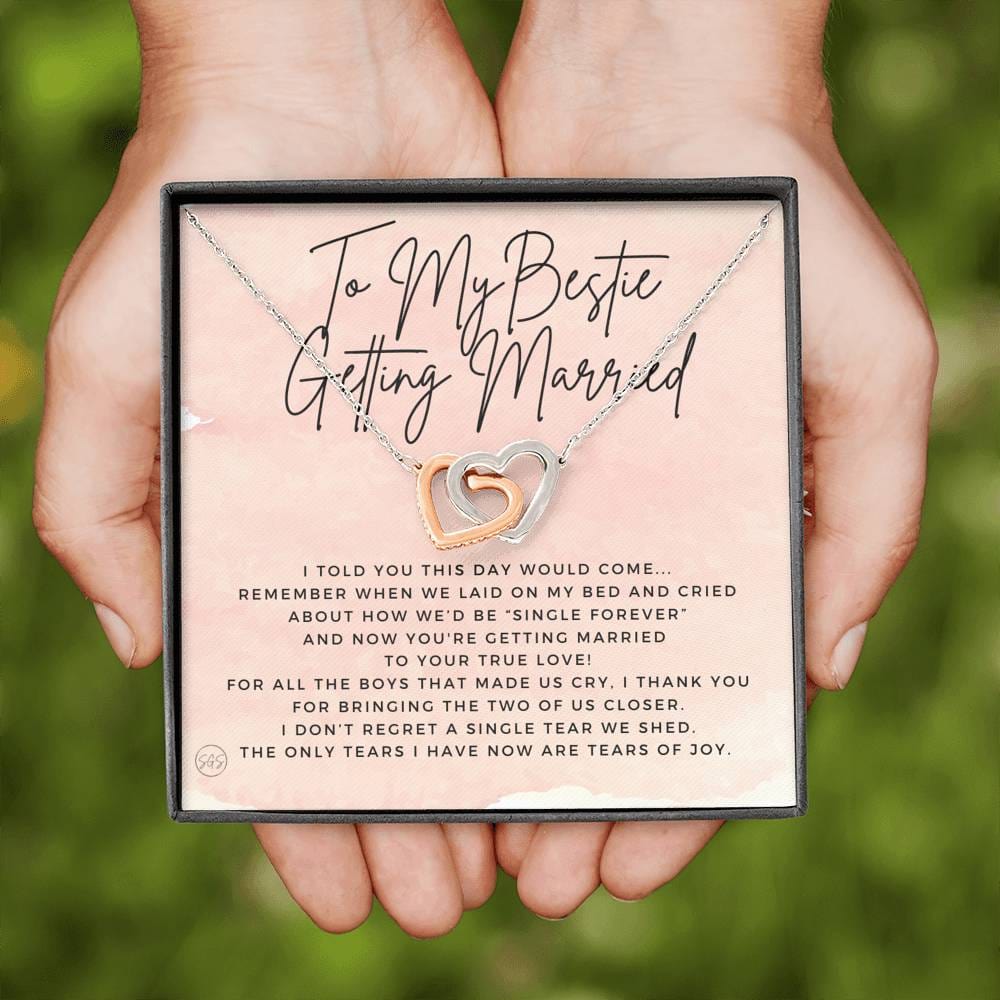 To My Bestie
Getting Married
I TOLD YOU THIS DAY WOULD COME...
REMEMBER WHEN WE LAID ON MY BED AND CRIED
ABOUT HOW WE'D BE “SINGLE FOREVER”
AND NOW YOU'RE GETTING MARRIED
TO YOUR TRUE LOVE!
FOR ALL THE BOYS THAT MADE US CRY, I THANK YOU
FOR BRINGING THE TWO OF US CLOSER.
I DON'T REGRET A SINGLE TEAR WE SHED.
THE ONLY TEARS I HAVE NOW ARE TEARS OF JOY.
SGS